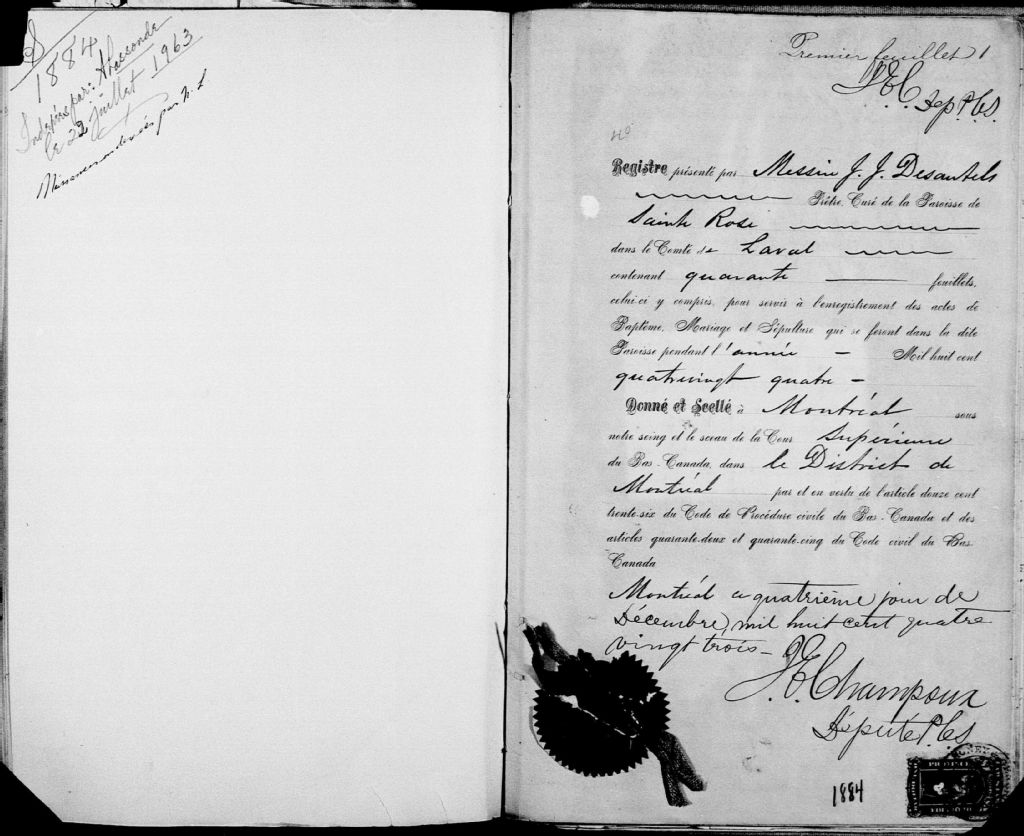 S
1884
Indexé par: A. Lassonde
le 22 juillet 1963
Premier feuillet 1
J.E.C. Dep. P.C.S.
40
Registre présenté par Messire J. J. Desautels
Prêtre, Curé de la Paroisse de
Sainte Rose
dans le Comté de Laval
contenant quarante feuillets,
celui-ci y compris, pour servir à l'enregistrement des actes de
Baptême, Mariage et Sépulture qui se feront dans la dite
Paroisse pendant l'année — Mil huit cent
quatrevingt quatre —
Donné et Scellé à Montréal sous
notre seing et le sceau de la Cour Supérieure
du Bas-Canada, dans le District de
Montréal par et en vertu de l'article douze cent
trente-six du Code de Procédure civile du Bas-Canada et des
articles quarante-deux et quarante-cinq du Code civil du Bas-
Canada
Montréal ce quatrième jour de
Décembre, mil huit cent quatre
vingt trois —
J.E. Champoux
Député P.C.S.
1884